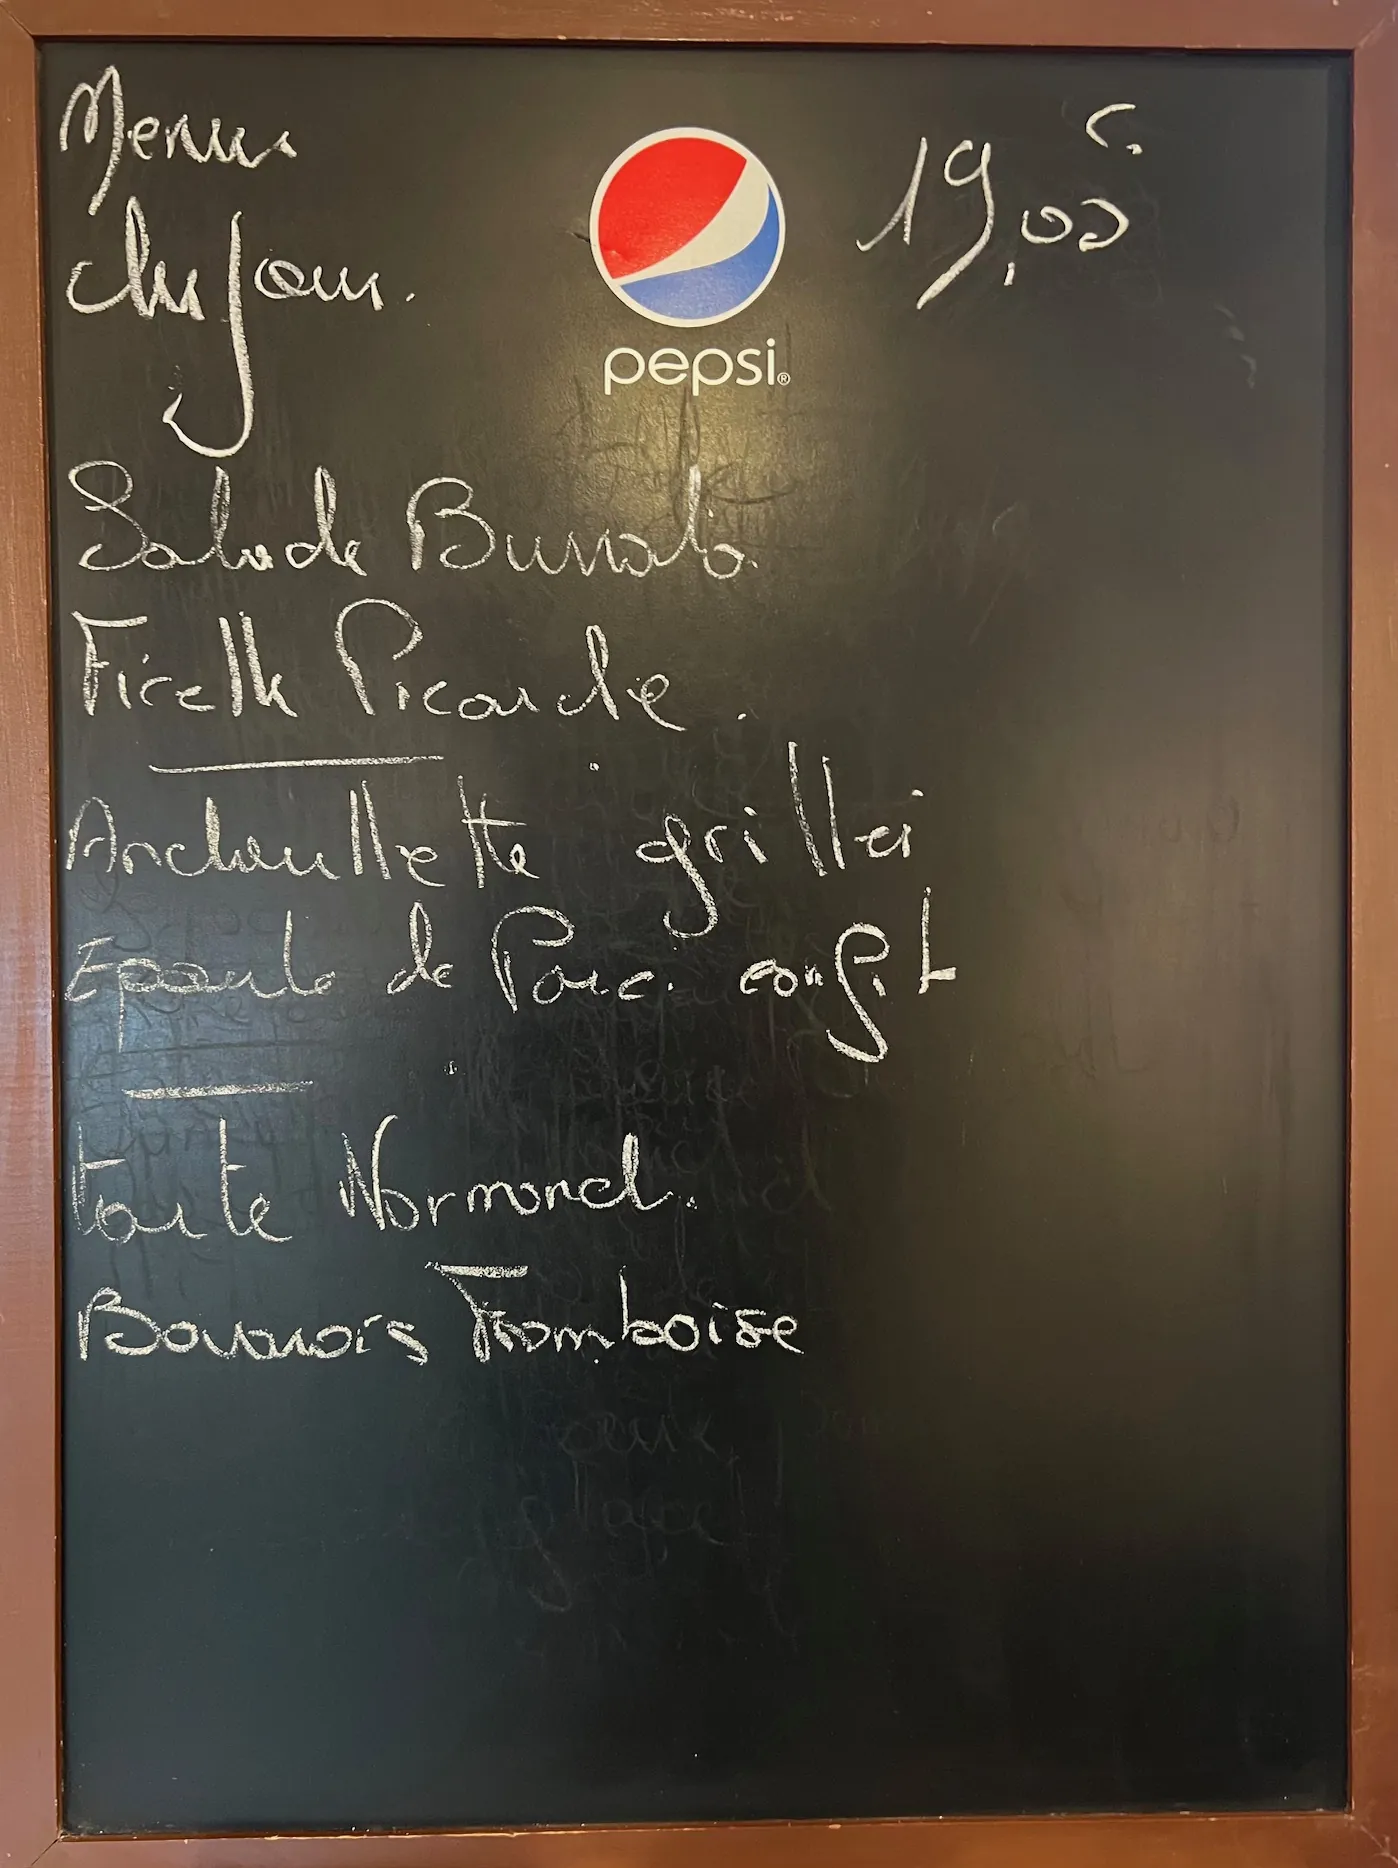 Menu
du Jour.
19,00 €
pepsi®
Salade Burrata.
Ficelle Picarde.
Andouillette grillei
Epaule de Porc confit
tarte Normand.
Bavarois Framboise